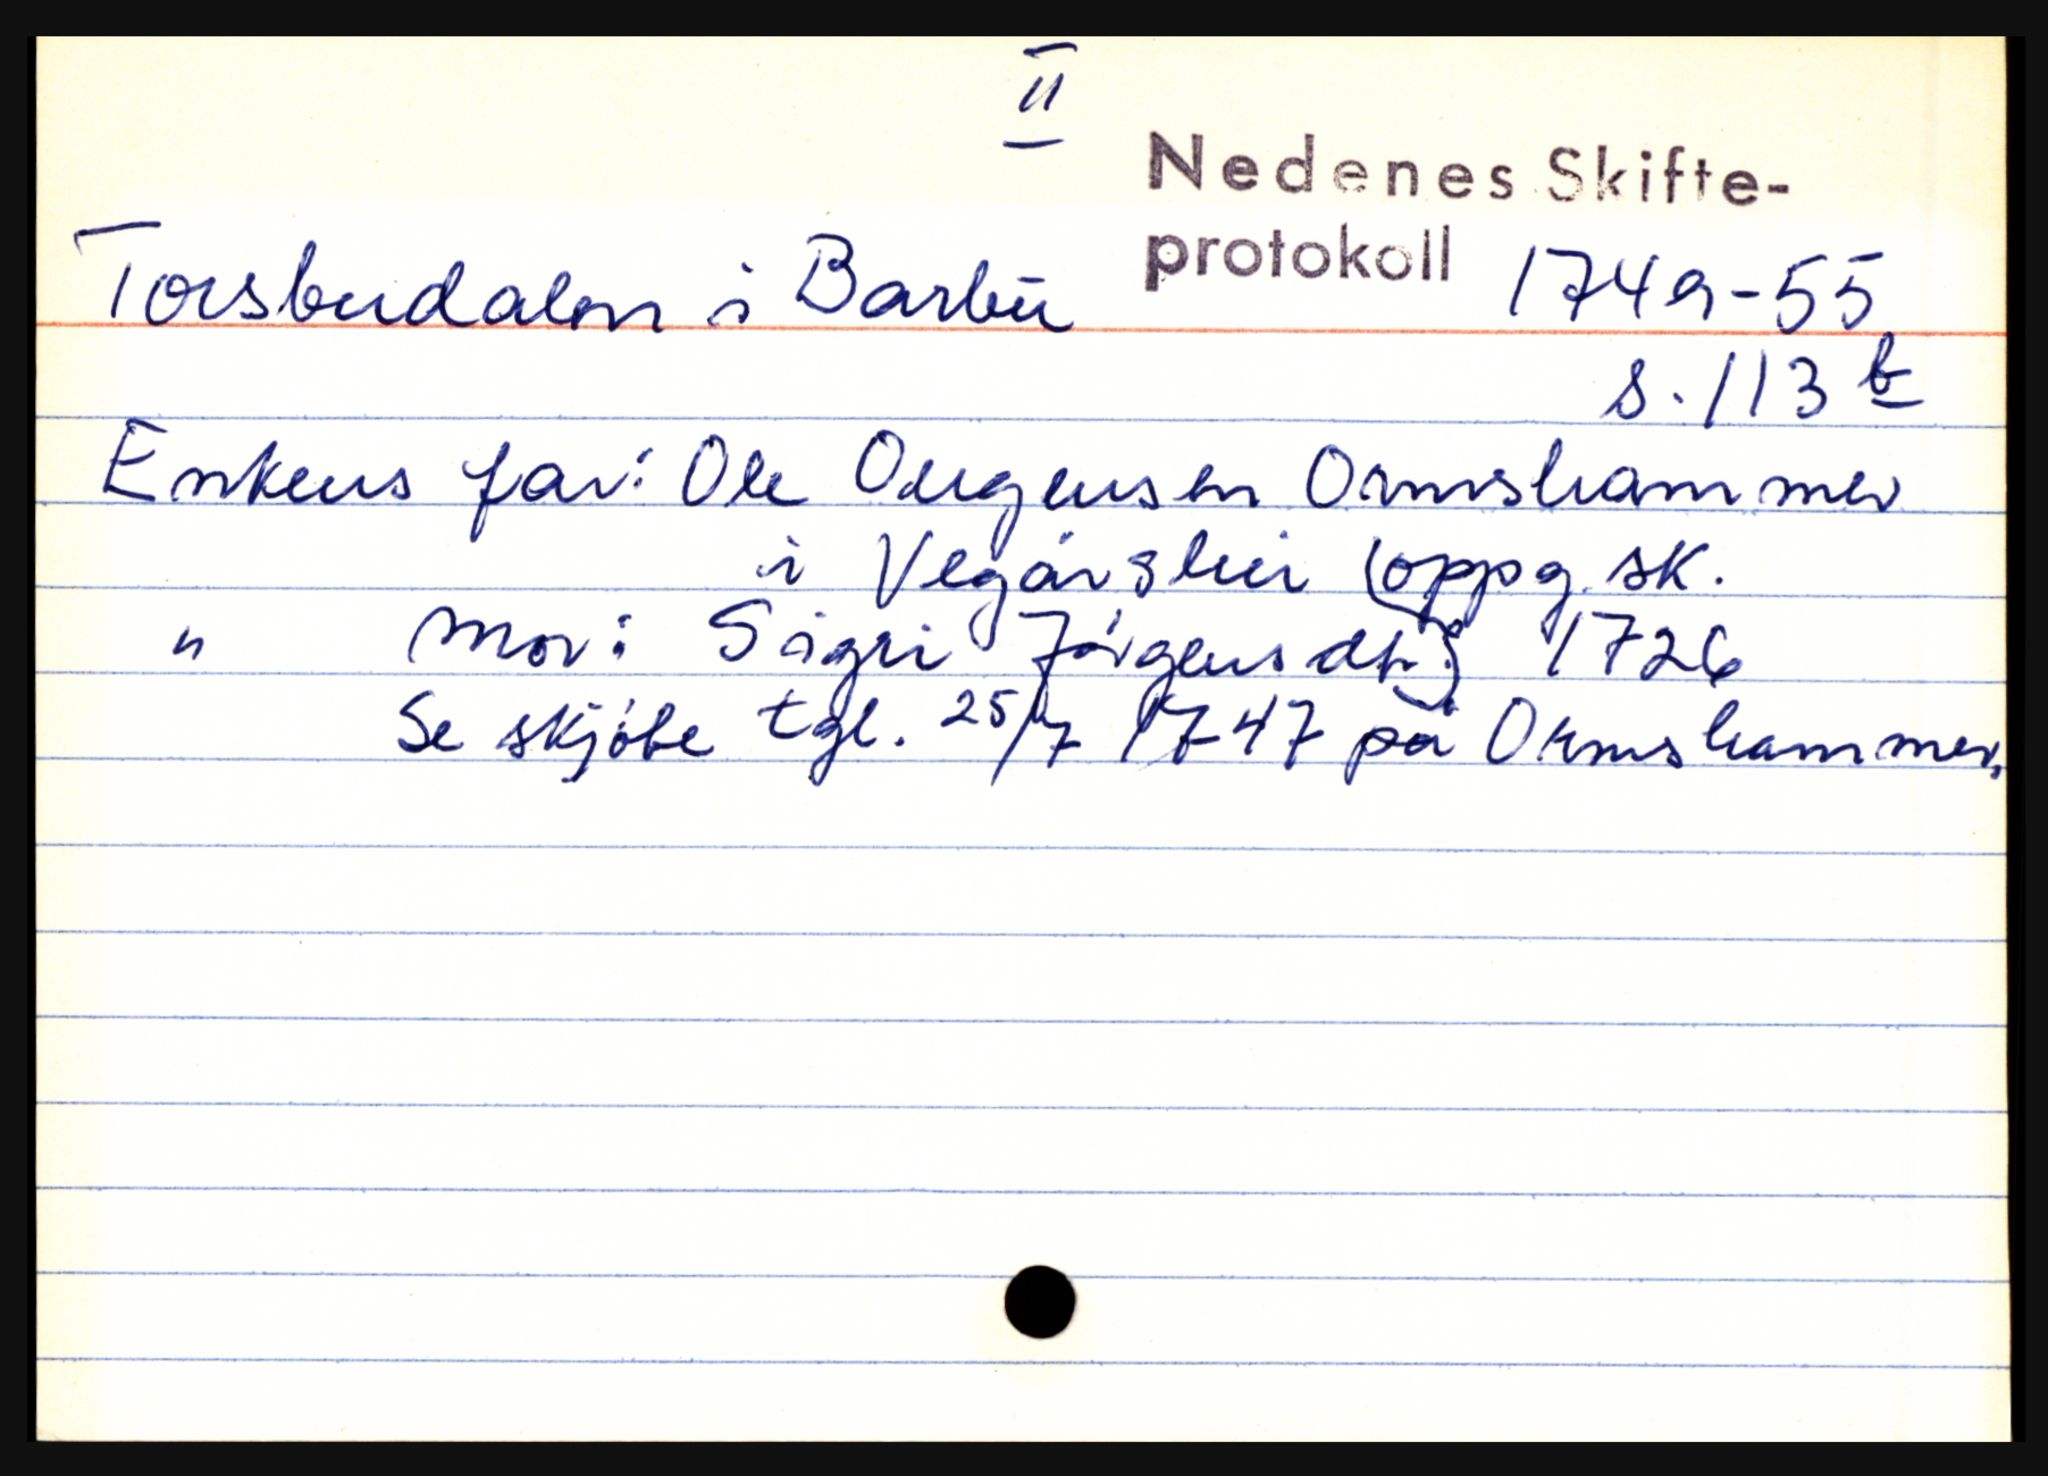 II
Nedenes Skifte-
protokoll 1749-55
Torsbudalen i Barbu
s. 113 b
Enkens far: Ole Ougensen Ormshammer
i Vegårshei (oppg. sk.
" mor: Sigri Jörgensdtr.) 1726
Se skjöte tgl. 25/7 1747 på Ormshammer.